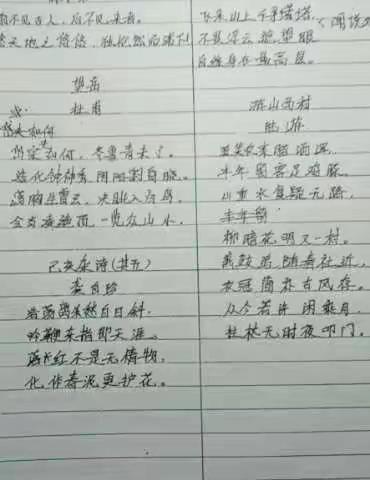 前不见古人，后不见来者。
念天地之悠悠，独怆然而涕下
望岳
杜甫
岱宗夫如何
岱宗如何，齐鲁青未了。
造化钟神秀，阴阳割昏晓。
荡胸生曾云，决眦入归鸟，
会当凌绝顶，一览众山小。
己亥杂诗（其五）
龚自珍
浩荡离愁白日斜，
吟鞭东指即天涯。
落红不是无情物，
化作春泥更护花。
飞来山上千寻塔，
不畏浮云遮望眼
自缘身在最高层。
游山西村
陆游
莫笑农家腊酒浑，
丰年留客足鸡豚。
山重水复疑无路，
柳暗花明又一村。
箫鼓追随春社近，
衣冠简朴古风存。
从今若许闲乘月，
拄杖无时夜叩门。